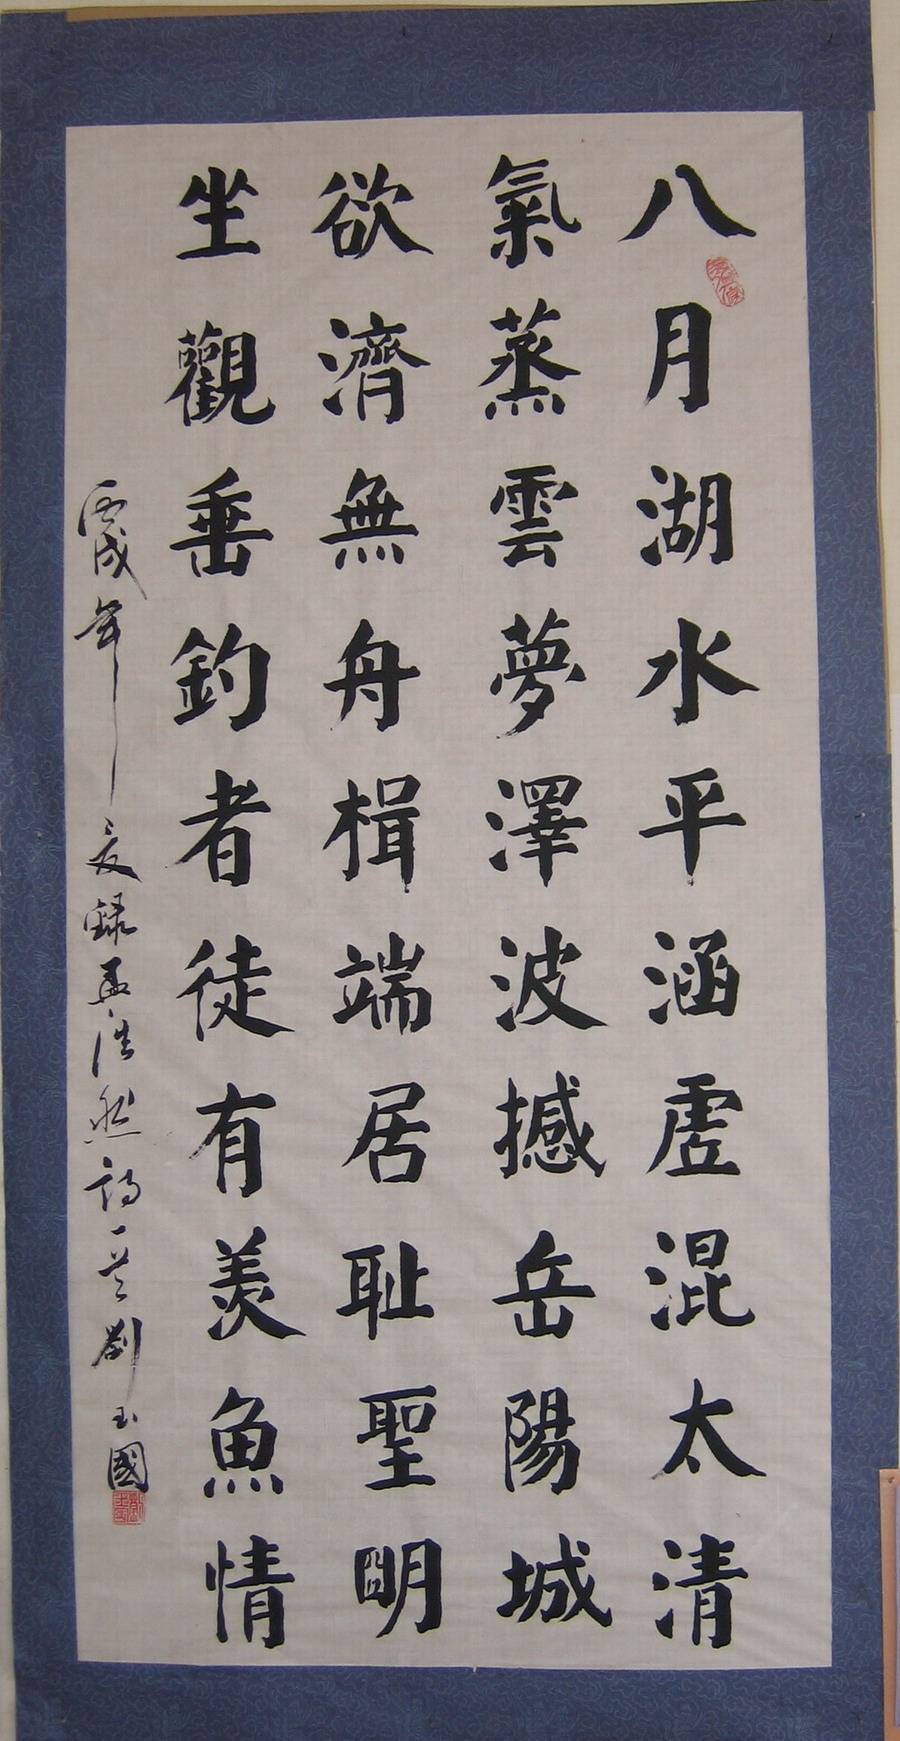 八月湖水平涵虛混太清
氣蒸雲夢澤波撼岳陽城
欲濟無舟楫端居耻聖明
坐觀垂釣者徒有羨魚情
丙戌年夏錄孟浩然詩一首劉玉國